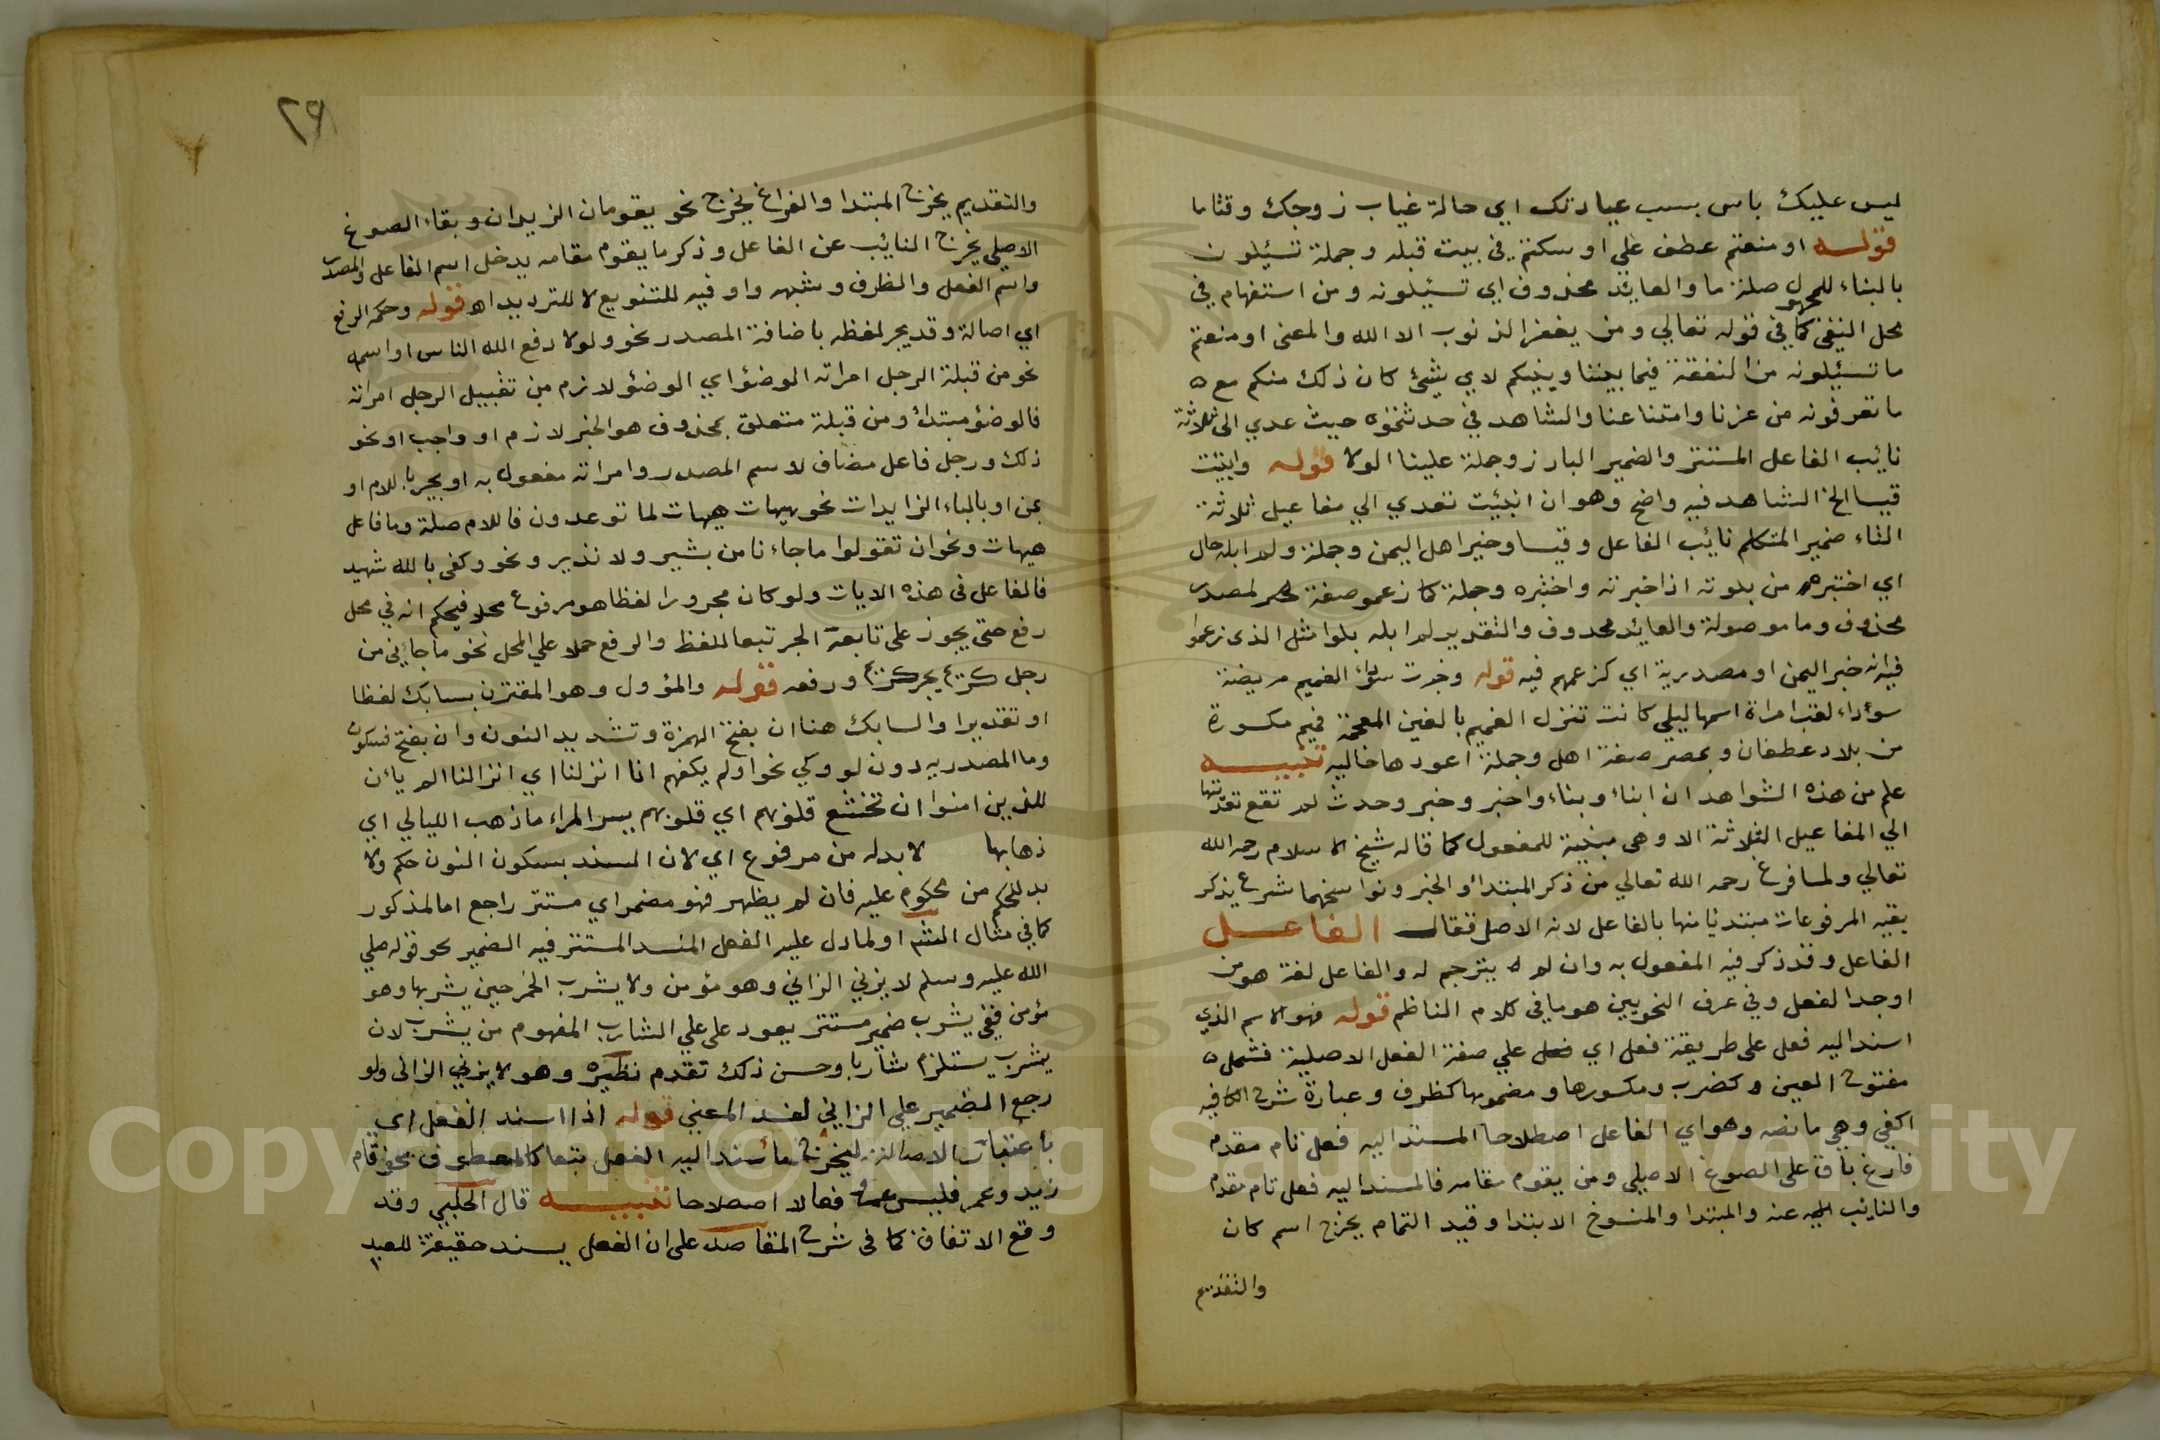 ليس عليك باس بسبب عيادتك اي حالة غياب زوجك وقتا ما
قوله او منعتم عطف علي او سكنتم في بيت قبله وجملة تسئلون
بالبناء للمجهول صلة ما والعايد محذوف اي تسئلونه ومن استفهام في
محل النفي كما في قوله تعالي ومن يغفر الذنوب الا الله والمعني او منعتم
ما تسئلونه من النفقة فيما بيننا وبينكم لاي شيئ كان ذلك منكم مع ه
ما تعرفونه من عزنا وامتناعنا والشاهد في حدثتموه حيث عدي الى ثلاثة
نايب الفاعل المستتر والضمير البارز وجملة علينا الولا قوله وانبئت
قيسا الخ الشاهد فيه واضح وهو ان انبئت تعدي الي مفاعيل ثلاثة
التاء ضمير المتكلم نائب الفاعل وقيسا وخير اهل اليمن وجملة ولم ابله حال
اي اختبره من بلوته اذا خبرته واختبره وجملة كما زعمو صفة لمصدر
محذوف وما موصولة والعايد محذوف والتقدير لم ابله بلوا مثل الذي زعموا
فيه انه خير اليمن او مصدرية اي كزعمهم فيه قوله وخبرت سوداء الغميم مريضة
سوداء لقب امراة اسمها ليلي كانت تنزل الغميم بالغين المعجمة فميم مكسورة
من بلاد غطفان وبمصر صفة اهل وجملة اعودها حاليه تنبيه
علم من هذه الشواهد ان انباء ونباء واخبر وخبر وحدث لم تقع تعديتها
الي المفاعيل الثلاثة الا وهي مبنية للمفعول كما قاله شيخ الاسلام رحمه الله
تعالي ولما فرغ رحمه الله تعالي من ذكر المبتداء والخبر ونواسخهما شرع يذكر
بقيه المرفوعات مبتديا منها بالفاعل لانه الاصل فقال الفاعل
الفاعل وقد ذكر فيه المفعول به وان لم يترجم له والفاعل لغة هو من
اوجد الفعل وفي عرف النحويين هو ما في كلام الناظم قوله فهو الاسم الذي
اسند اليه فعل على طريقة فعل اي فعل علي صفة الفعل الاصلية فشمل ه
مفتوح العين كضرب ومكسورها ومضمومها كظرف وعبارة شرح الكافيه
اكفي وهي ما نصه وهو اي الفاعل اصطلاحا المسند اليه فعل تام مقدم
فارغ باق على الصوغ الاصلي ومن يقوم مقامه فالمسند اليه فعل تام مقدم
والنايب عنه والمبتدا والمنسوخ الابتدا وقيد التمام يخرج اسم كان
والتقديم
٢٦
والتقديم يخرج المبتدا والفراغ يخرج نحو يقومان الزيدان وبقاء الصوغ
الاصلي يخرج النائب عن الفاعل وذكر ما يقوم مقامه يدخل اسم الفاعل والمصدر
واسم الفعل والظرف وشبهه واو فيه للتنويع لا للترديد اه قوله وحكمه الرفع
اي اصالة وقد يجر لفظه باضافة المصدر نحو ولولا دفع الله الناس او اسمه
نحو من قبلة الرجل امراته الوضؤ اي الوضؤ لازم من تقبيل الرجل امراته
فالوضؤ مبتداء ومن قبلة متعلق بمحذوف هو الخبر لازم او واجب او نحو
ذلك ورجل فاعل مضاف لاسم المصدر وامراته مفعول به او يجر باللام او
بمن او بالباء الزايدات نحو هيهات هيهات لما توعدون فاللام صلة وما فاعل
هيهات ونحو ان تقولوا ما جاءنا من بشير ولا نذير ونحو وكفى بالله شهيد
فالفاعل في هذه الايات ولو كان مجرورا لفظا هو مرفوع محلا فيحكم انه في محل
رفع حتى يجوز على تابعه الجر تبعا للفظ والرفع حملا علي المحل نحو ما جاني من
رجل كريم بجر كريم ورفعه قوله والمؤول وهو المقترن بسابك لفظا
او تقديرا والسابك هنا ان بفتح الهمزة وتشديد النون وان بفتح فسكون
وما المصدريه دون لو وكي نحو اولم يكفهم انا انزلنا اي انزالنا الم يائن
للذين امنوا ان تخشع قلوبهم اي قلوبهم يسر المراء ما ذهب الليالي اي
ذهابها لا بد له من مرفوع اي لان المسند بسكون النون حكم ولا
بد للحكم من محكوم عليه فان لم يظهر فهو مضمر اي مستتر راجع اما لمذكور
كما في مثال المتن او لما دل عليه الفعل المسند المستتر فيه الضمير نحو قوله صلي
الله عليه وسلم لا يزني الزاني وهو مؤمن ولا يشرب الخمر حين يشربها وهو
مؤمن ففي يشرب ضمير مستتر يعود على علي الشارب المفهوم من يشرب لان
يشرب يستلزم شاربا وحسن ذلك تقدم نظيره وهو لا يزني الزاني ولو
رجع الضمير علي الزاني لفسد المعني قوله اذا اسند الفعل اي
باعتبار الاصالة ليخرج ما اسند اليه الفعل تبعا كالمعطوف نحو قام
زيد وعمر فليس عمرو فاعلا اصطلاحا تنبيه قال الحلبي وقد
وقع الاتفاق كما في شرح المقاصد على ان الفعل يسند حقيقة للعبد
Copyright © King Saud University